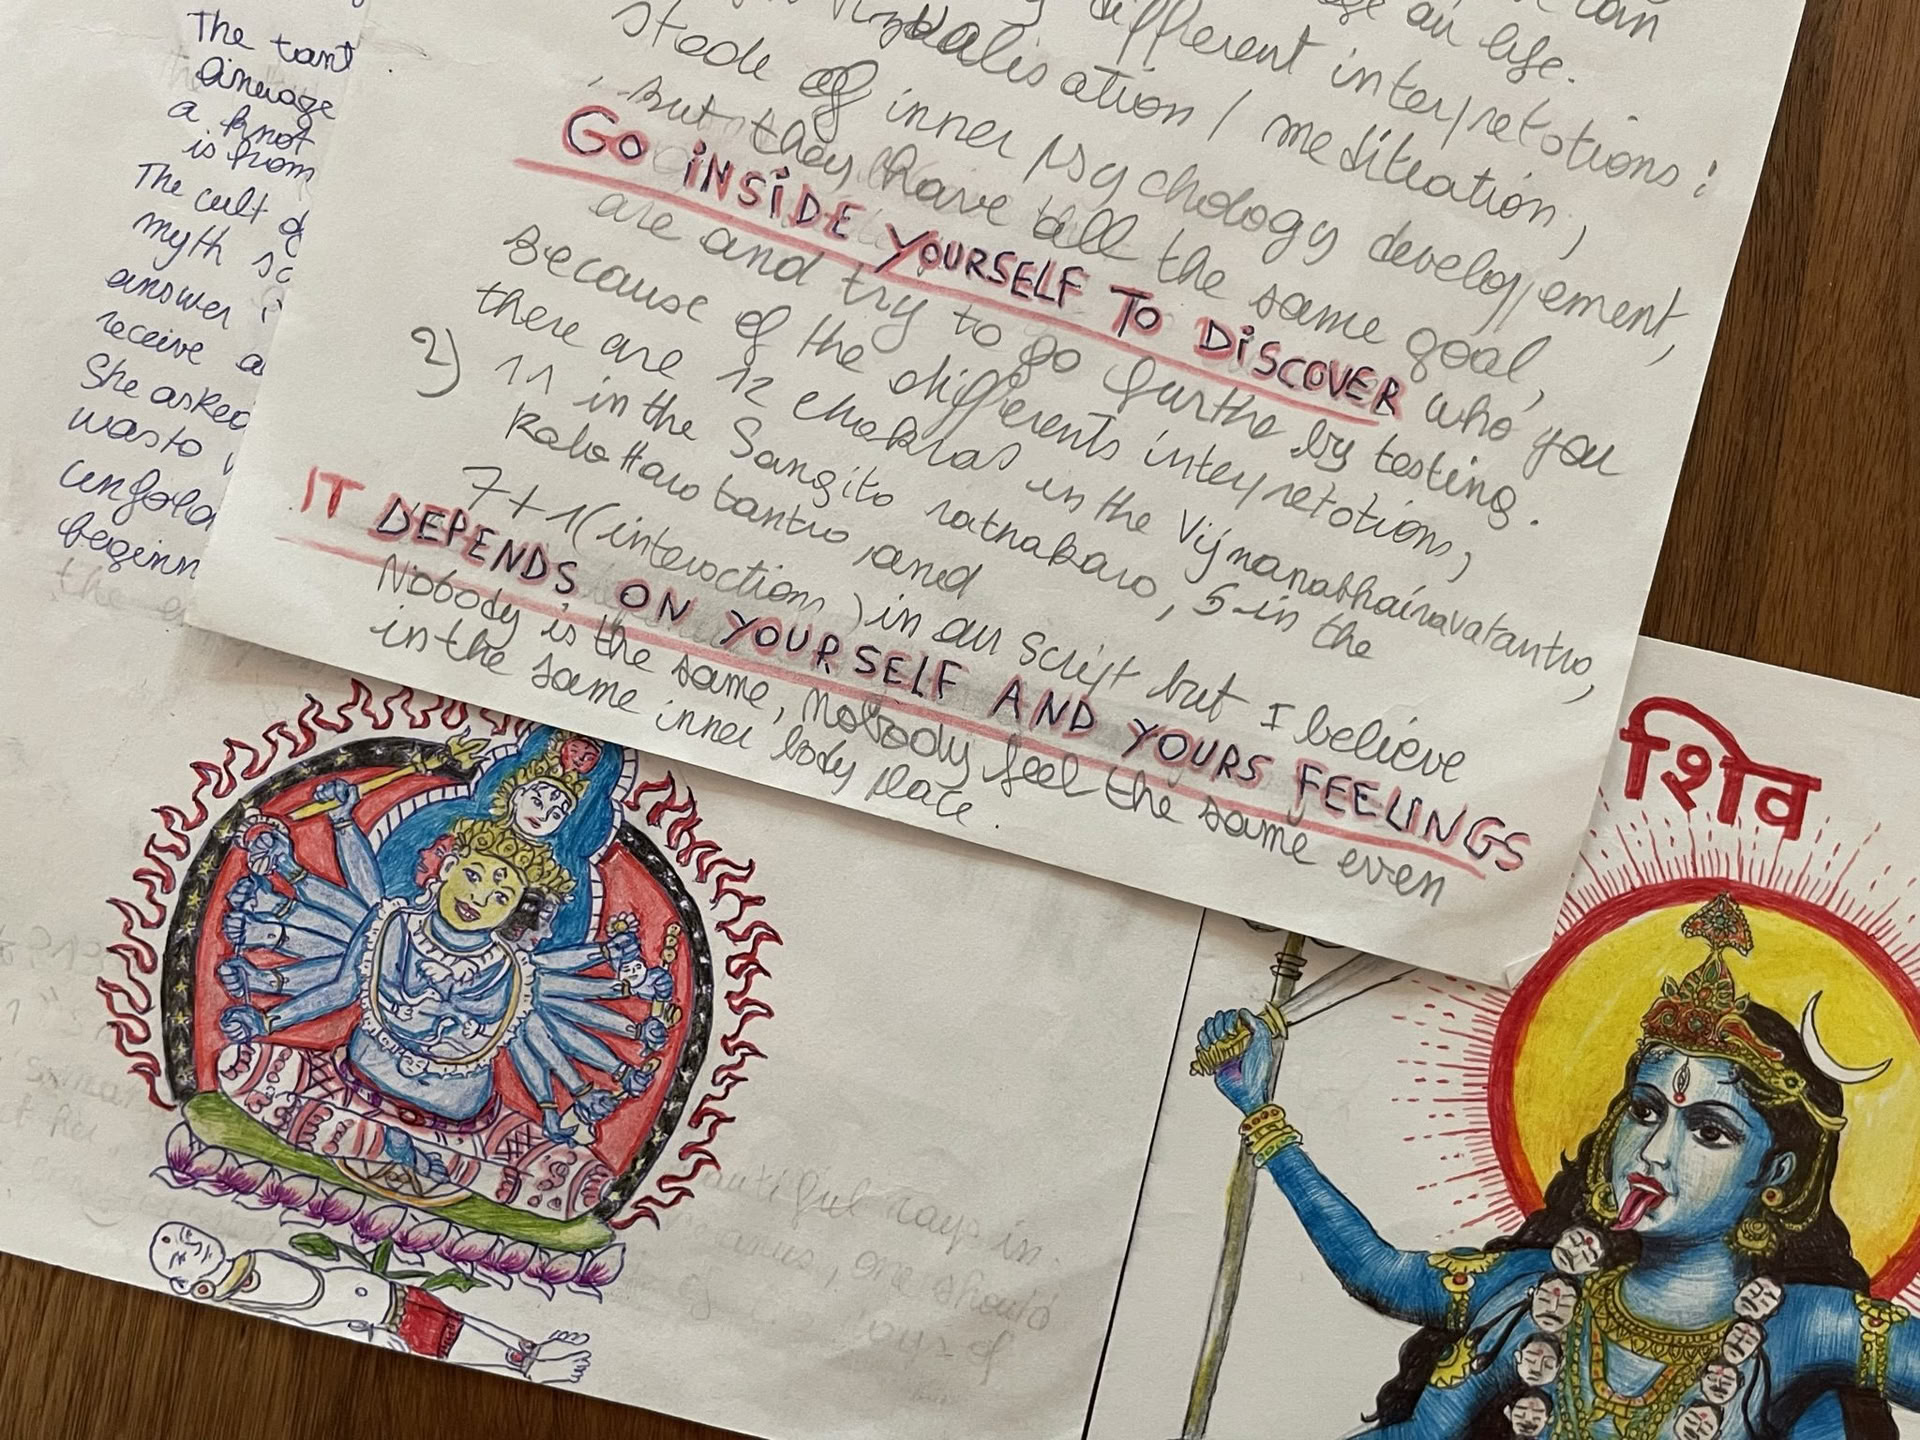 The tant
lineage
a knot
is from
The cult of
myth
answer
receive
She asked
was to
unfold
beginn
can
our life.
different interpretations :
visualisation / meditation,
stade of inner psychology developpement,
, but they have all the same goal,
GO INSIDE YOURSELF TO DISCOVER who you
are and try to go furthe by testing.
Because of the differents interpretations,
2) there are 12 chakras in the Vijnanabhairavatantra,
11 in the Sangita ratnakara, 5 in the
Kalottara tantra and
7+1 (interaction) in our script but I believe
IT DEPENDS ON YOURSELF AND YOURS FEELINGS
Nobody is the same, Nobody feel the same even
in the same inner body place.
शिव
beautiful rays in
one should
rays of